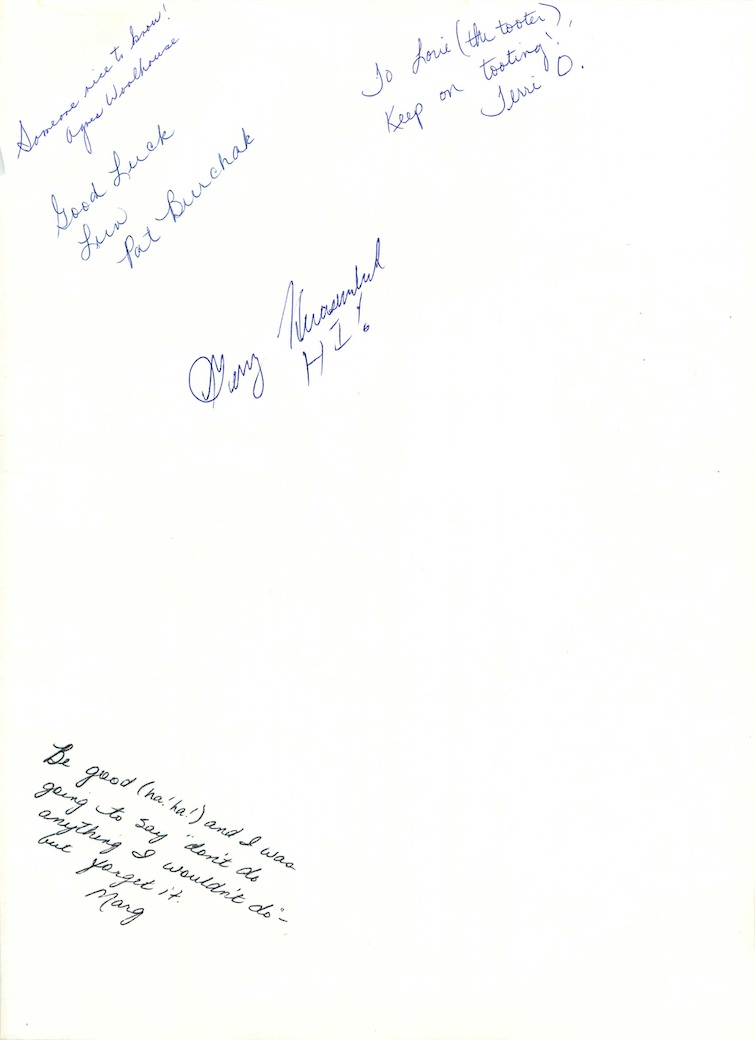 Someone nice to know!
Agnes Woolhouse
Good Luck
Pat Burchak
To Lorie (the tooter),
Keep on tooting!
Terri O.
HI!
Be good (ha! ha!) and I was
going to say "don't do
anything I wouldn't do"-
but forget it.
Marg